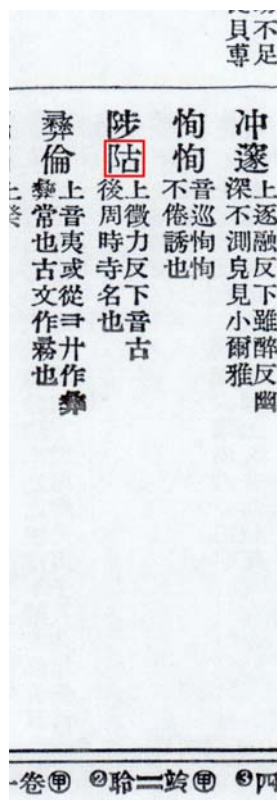 不足
貝專
冲邃
上逐融反下雖醉反幽
深不測皃見小爾雅
恂恂
音巡恂恂
不倦誘也
陟䧸
上徵力反下音古
後周時寺名也
彝倫
上音夷或從彐廾作彝
彝常也古文作
也
四
❸
甲
二聆
❷
甲
卷